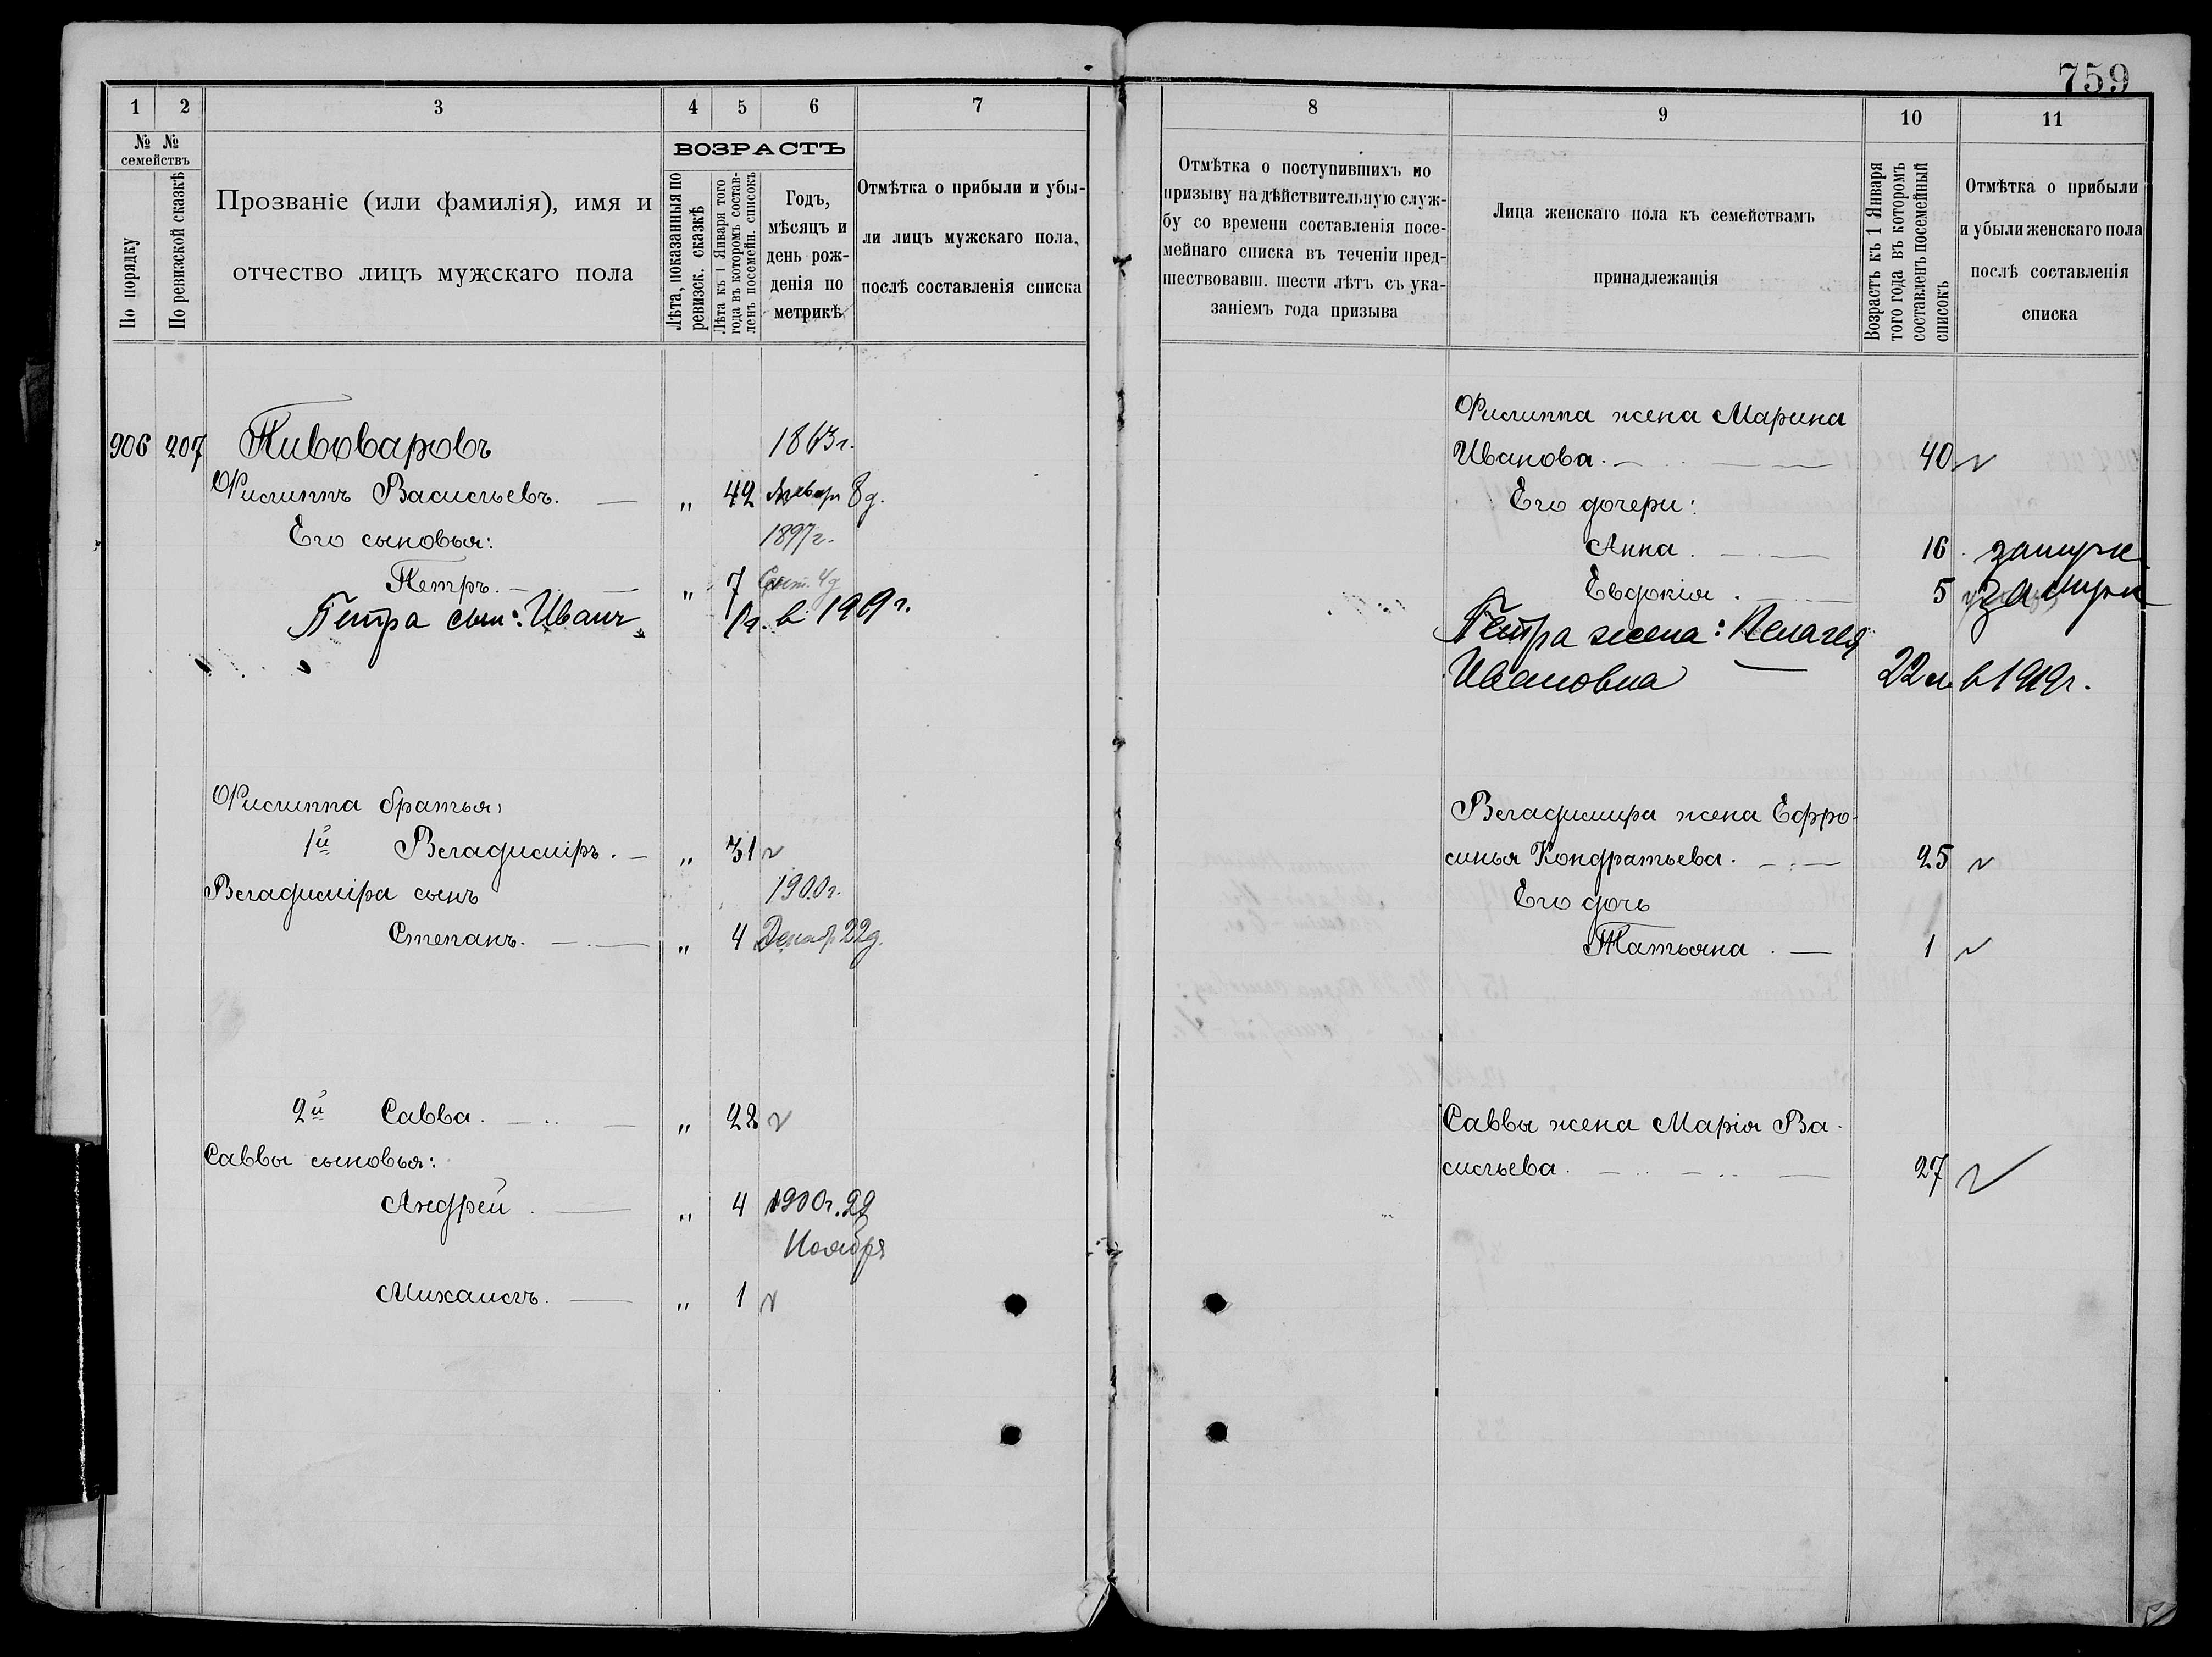 759
1 2 3 4 5 6 7
№ № семействъ
По порядку
По ревизской сказкѣ
Прозваніе (или фамилія), имя и
отчество лицъ мужскаго пола
ВОЗРАСТЪ
Лѣта, показанныя по
ревизск. сказкѣ
Лѣта къ 1 Января того
года въ которомъ состав-
ленъ посемейн. списокъ
Годъ,
мѣсяцъ и
день рож-
денія по
метрикѣ
Отмѣтка о прибыли и убы-
ли лицъ мужскаго пола,
послѣ составленія списка
906 207 Пивоваровъ 1863 г.
Филиппъ Васильевъ. — „ 42 Января 8 д.
Его сыновья: 1897 г.
Петръ. — „ 7 Сент. 4 д
Петра сын: Иванъ 1 г. в 1919 г.
Филиппа братья:
1й Владиміръ. — „ 31
Владиміра сынъ 1900 г.
Степанъ. — „ 4 Декаб. 22 д.
2й Савва. — „ 28
Саввы сыновья:
Андрей. — „ 4 1900 г. 22
Ноября
Михаилъ. — „ 1
8 9 10 11
Отмѣтка о поступившихъ по
призыву на дѣйствительную служ-
бу со времени составленія посе-
мейнаго списка въ теченіи пред-
шествовавш. шести лѣтъ съ ука-
заніемъ года призыва
Лица женскаго пола къ семействамъ
принадлежащія
Возрастъ къ 1 Января
того года въ которомъ
составленъ посемейный
списокъ
Отмѣтка о прибыли
и убыли женскаго пола
послѣ составленія
списка
Филиппа жена Марина
Иванова. — 40
Его дочери:
Анна. — 16 замуж
Евдокія. — 5 замуж
Петра жена: Пелагея
Ивановна — 22 л. в 1919 г.
Владимира жена Ефро-
синья Кондратьева. — 25
Его дочь
Татьяна. — 1
Саввы жена Марія Ва-
сильева. — 27